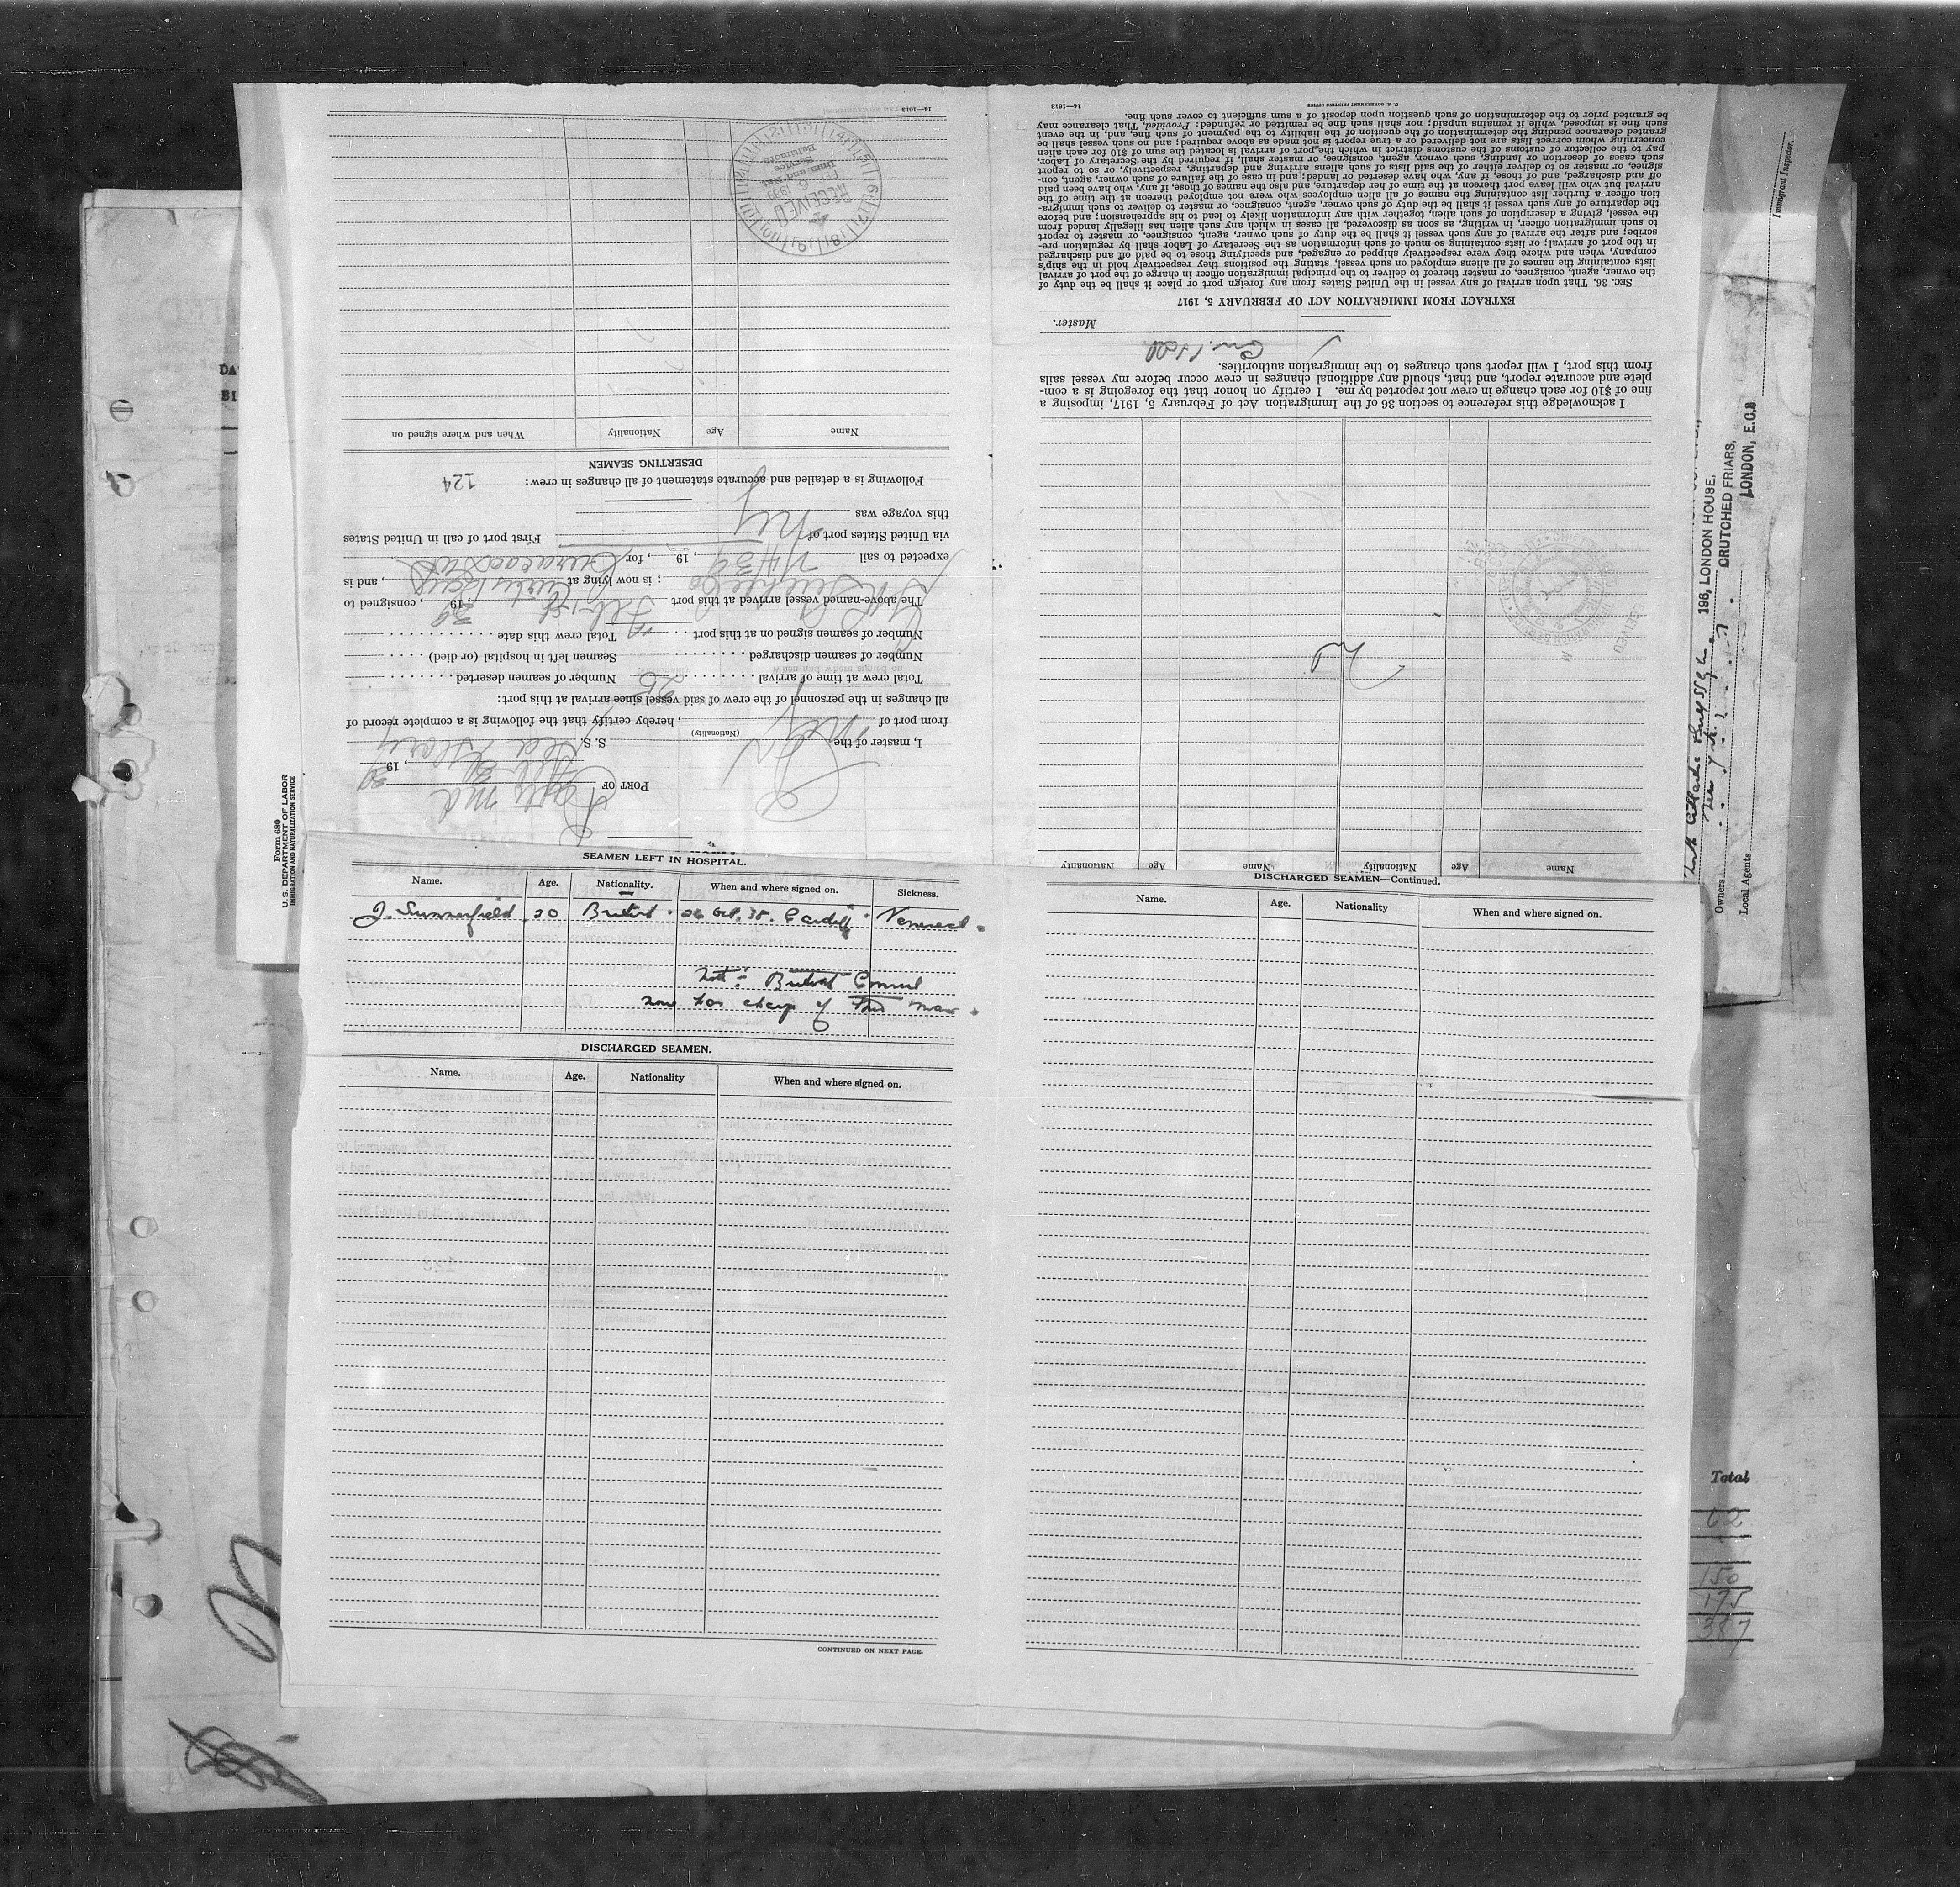 Form 680
U.S. DEPARTMENT OF LABOR
IMMIGRATION AND NATURALIZATION SERVICE
PORT OF Balto md
Feb 2, 19 39
I, master of the S. S.
(Nationality)
from port of , hereby certify that the following is a complete record of
all changes in the personnel of the crew of said vessel since arrival at this port:
Total crew at time of arrival 25 Number of seamen deserted
Number of seamen discharged Seamen left in hospital (or died)
Number of seamen signed on at this port Total crew this date
The above-named vessel arrived at this port Feb 1st, 19 39, consigned to
; is now lying at Curtis Bay, and is
expected to sail , 19 , for Curacao
via United States port of First port of call in United States
this voyage was
Following is a detailed and accurate statement of all changes in crew: 124
DESERTING SEAMEN
Name Age Nationality When and where signed on
RECEIVED
FEB 1939
Imm. and Nat.
Service
Baltimore
14—1613
Name Age Nationality Name Age Nationality
I acknowledge this reference to section 36 of the Immigration Act of February 5, 1917, imposing a
fine of $10 for each change in crew not reported by me. I certify on honor that the foregoing is a com-
plete and accurate report, and that, should any additional changes in crew occur before my vessel sails
from this port, I will report such changes to the immigration authorities.
Master.
EXTRACT FROM IMMIGRATION ACT OF FEBRUARY 5, 1917
SEC. 36. That upon arrival of any vessel in the United States from any foreign port or place it shall be the duty of
the owner, agent, consignee, or master thereof to deliver to the principal immigration officer in charge of the port of arrival
lists containing the names of all aliens employed on such vessel, stating the positions they respectively hold in the ship's
company, when and where they were respectively shipped or engaged, and specifying those to be paid off and discharged
in the port of arrival; or lists containing so much of such information as the Secretary of Labor shall by regulation pre-
scribe; and after the arrival of any such vessel it shall be the duty of such owner, agent, consignee, or master to report
to such immigration officer, in writing, as soon as discovered, all cases in which any such alien has illegally landed from
the vessel, giving a description of such alien, together with any information likely to lead to his apprehension; and before
the departure of any such vessel it shall be the duty of such owner, agent, consignee, or master to deliver to such immigra-
tion officer a further list containing the names of all alien employees who were not employed thereon at the time of the
arrival but who will leave port thereon at the time of her departure, and also the names of those, if any, who have been paid
off and discharged, and of those, if any, who have deserted or landed; and in case of the failure of such owner, agent, con-
signee, or master so to deliver either of the said lists of such aliens arriving and departing, respectively, or so to report
such cases of desertion or landing, such owner, agent, consignee, or master shall, if required by the Secretary of Labor,
pay to the collector of customs of the customs district in which the port of arrival is located the sum of $10 for each alien
concerning whom correct lists are not delivered or a true report is not made as above required; and no such vessel shall be
granted clearance pending the determination of the question of the liability to the payment of such fine, and, in the event
such fine is imposed, while it remains unpaid; nor shall such fine be remitted or refunded: Provided, That clearance may
be granted prior to the determination of such question upon deposit of a sum sufficient to cover such fine.
U. S. GOVERNMENT PRINTING OFFICE 14—1613
SEAMEN LEFT IN HOSPITAL.
Name. Age. Nationality. When and where signed on. Sickness.
J. Summerfield 20 British 26 Oct. 38. Cardiff Venereal
Note:- British Consul
now has charge of this man
DISCHARGED SEAMEN.
Name. Age. Nationality When and where signed on.
CONTINUED ON NEXT PAGE.
DISCHARGED SEAMEN—Continued.
Name. Age. Nationality When and where signed on.
Immigrant Inspector.
196, LONDON HOUSE,
CRUTCHED FRIARS,
LONDON, E.C.3
Owners
Local Agents
Total
62
150
175
387